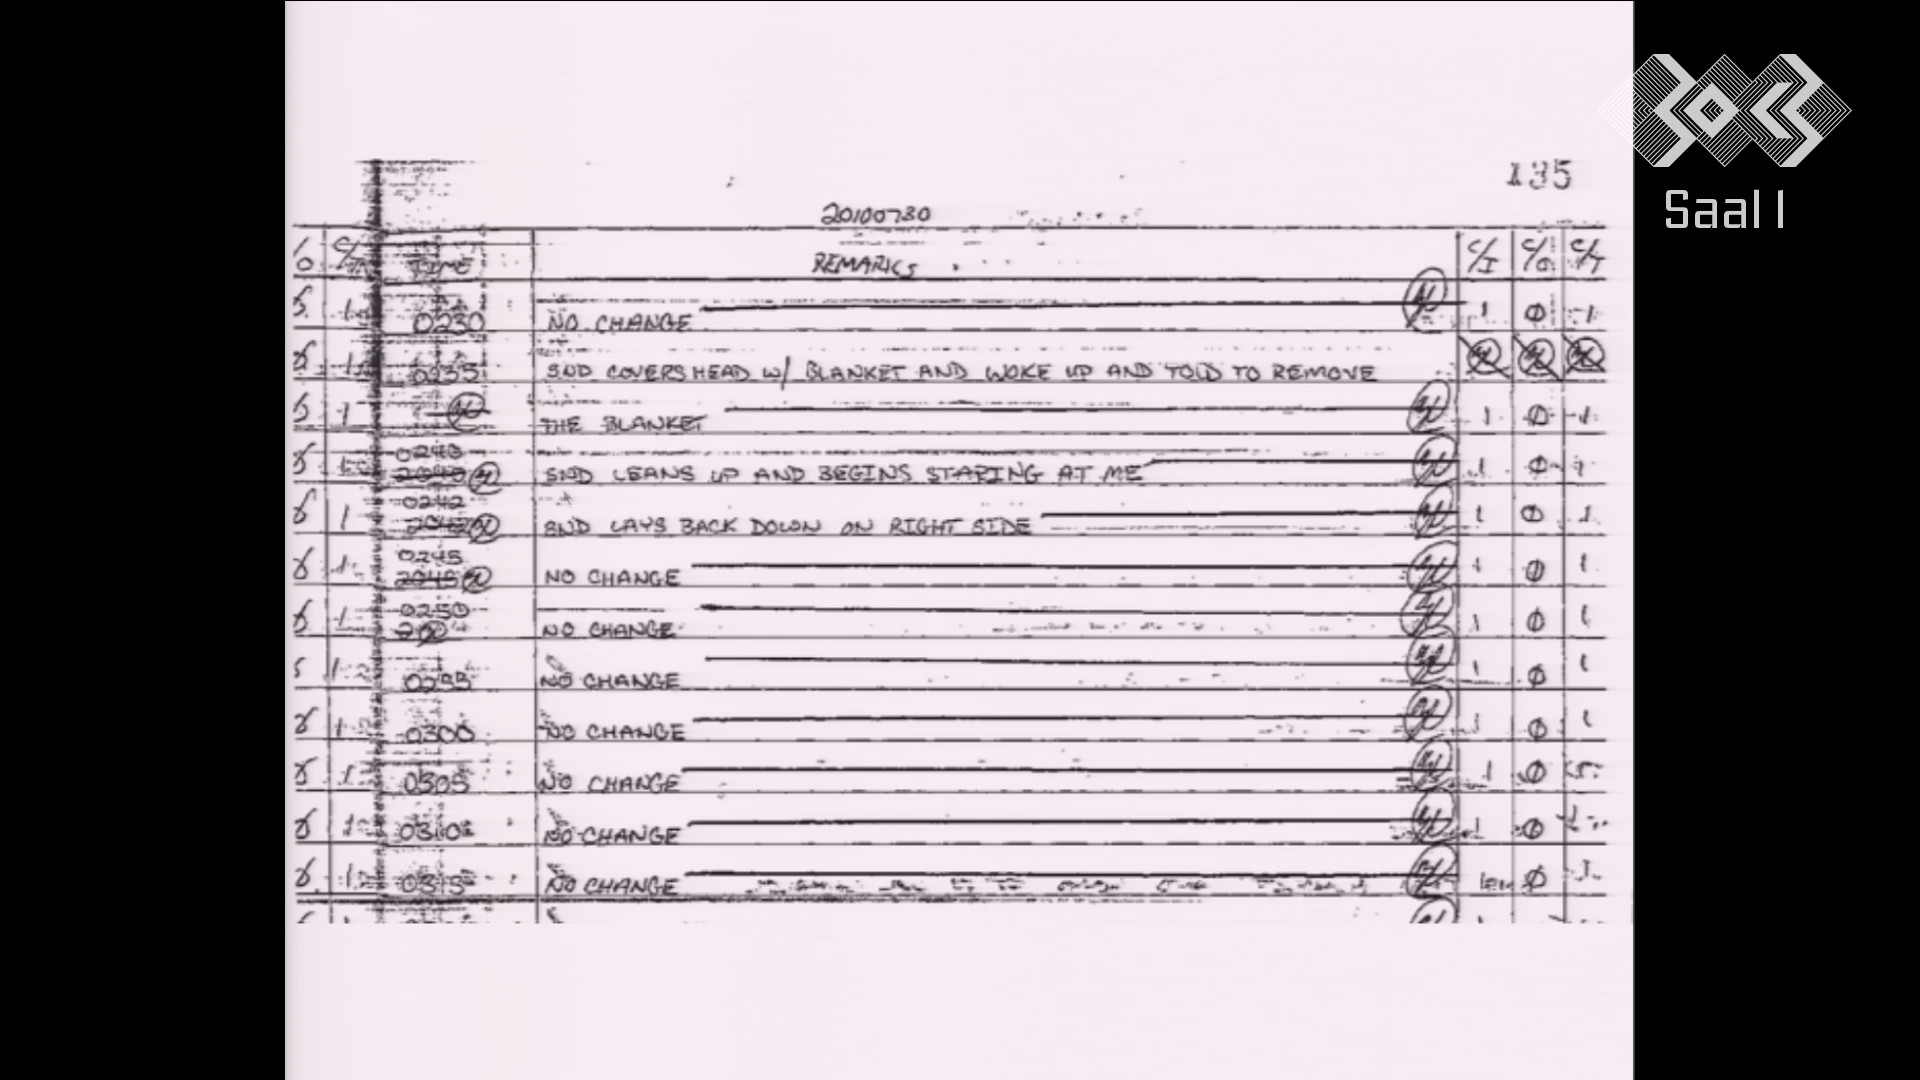 135
20100730
TIME REMARKS C/I C/O C/T
0230 NO CHANGE 1 0 1
0235 SND COVERS HEAD W/ BLANKET AND WOKE UP AND TOLD TO REMOVE
1 THE BLANKET 1 0 1
0240
SND LEANS UP AND BEGINS STARING AT ME 1 0 1
0242
1 SND LAYS BACK DOWN ON RIGHT SIDE 1 0 1
0245
2045 NO CHANGE 1 0 1
0250
1 NO CHANGE 1 0 1
0255 NO CHANGE 1 0 1
0300 NO CHANGE 1 0 1
0305 NO CHANGE 1 0
0310 NO CHANGE 1 0
0315 NO CHANGE 0
Saal 1